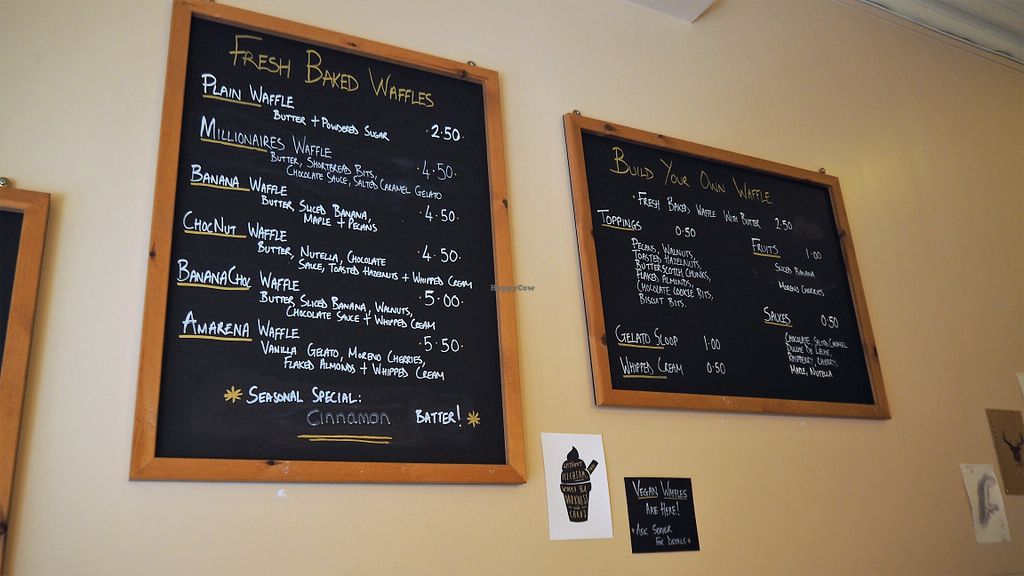 FRESH BAKED WAFFLES
PLAIN WAFFLE
BUTTER + POWDERED SUGAR ·2·50·
MILLIONAIRES WAFFLE
BUTTER, SHORTBREAD BITS, ·4·50·
CHOCOLATE SAUCE, SALTED CARAMEL GELATO
BANANA WAFFLE
BUTTER, SLICED BANANA, ·4·50·
MAPLE + PECANS
CHOCNUT WAFFLE
BUTTER, NUTELLA, CHOCOLATE ·4·50·
SAUCE, TOASTED HAZELNUTS + WHIPPED CREAM
BANANACHOC WAFFLE
BUTTER, SLICED BANANA, WALNUTS, ·5·00·
CHOCOLATE SAUCE + WHIPPED CREAM
AMARENA WAFFLE
VANILLA GELATO, MORENO CHERRIES, ·5·50·
FLAKED ALMONDS + WHIPPED CREAM
SEASONAL SPECIAL:
CINNAMON BATTER!
BUILD YOUR OWN WAFFLE
· FRESH BAKED WAFFLE WITH BUTTER 2·50
TOPPINGS 0·50
PECANS, WALNUTS,
TOASTED HAZELNUTS,
BUTTERSCOTCH CHUNKS,
FLAKED ALMONDS,
CHOCOLATE COOKIE BITS,
BISCUIT BITS.
GELATO SCOOP 1·00
WHIPPED CREAM 0·50
FRUITS 1·00
SLICED BANANA
MORENO CHERRIES
SAUCES 0·50
CHOCOLATE, SALTED CARAMEL,
DULCE DE LECHE,
RASPBERRY, CHERRY,
MAPLE, NUTELLA
HappyCow
WITHOUT
ICE CREAM
DARKNESS
CHAOS
VEGAN WAFFLES
ARE HERE!
· ASK SERVER
FOR DETAILS ·